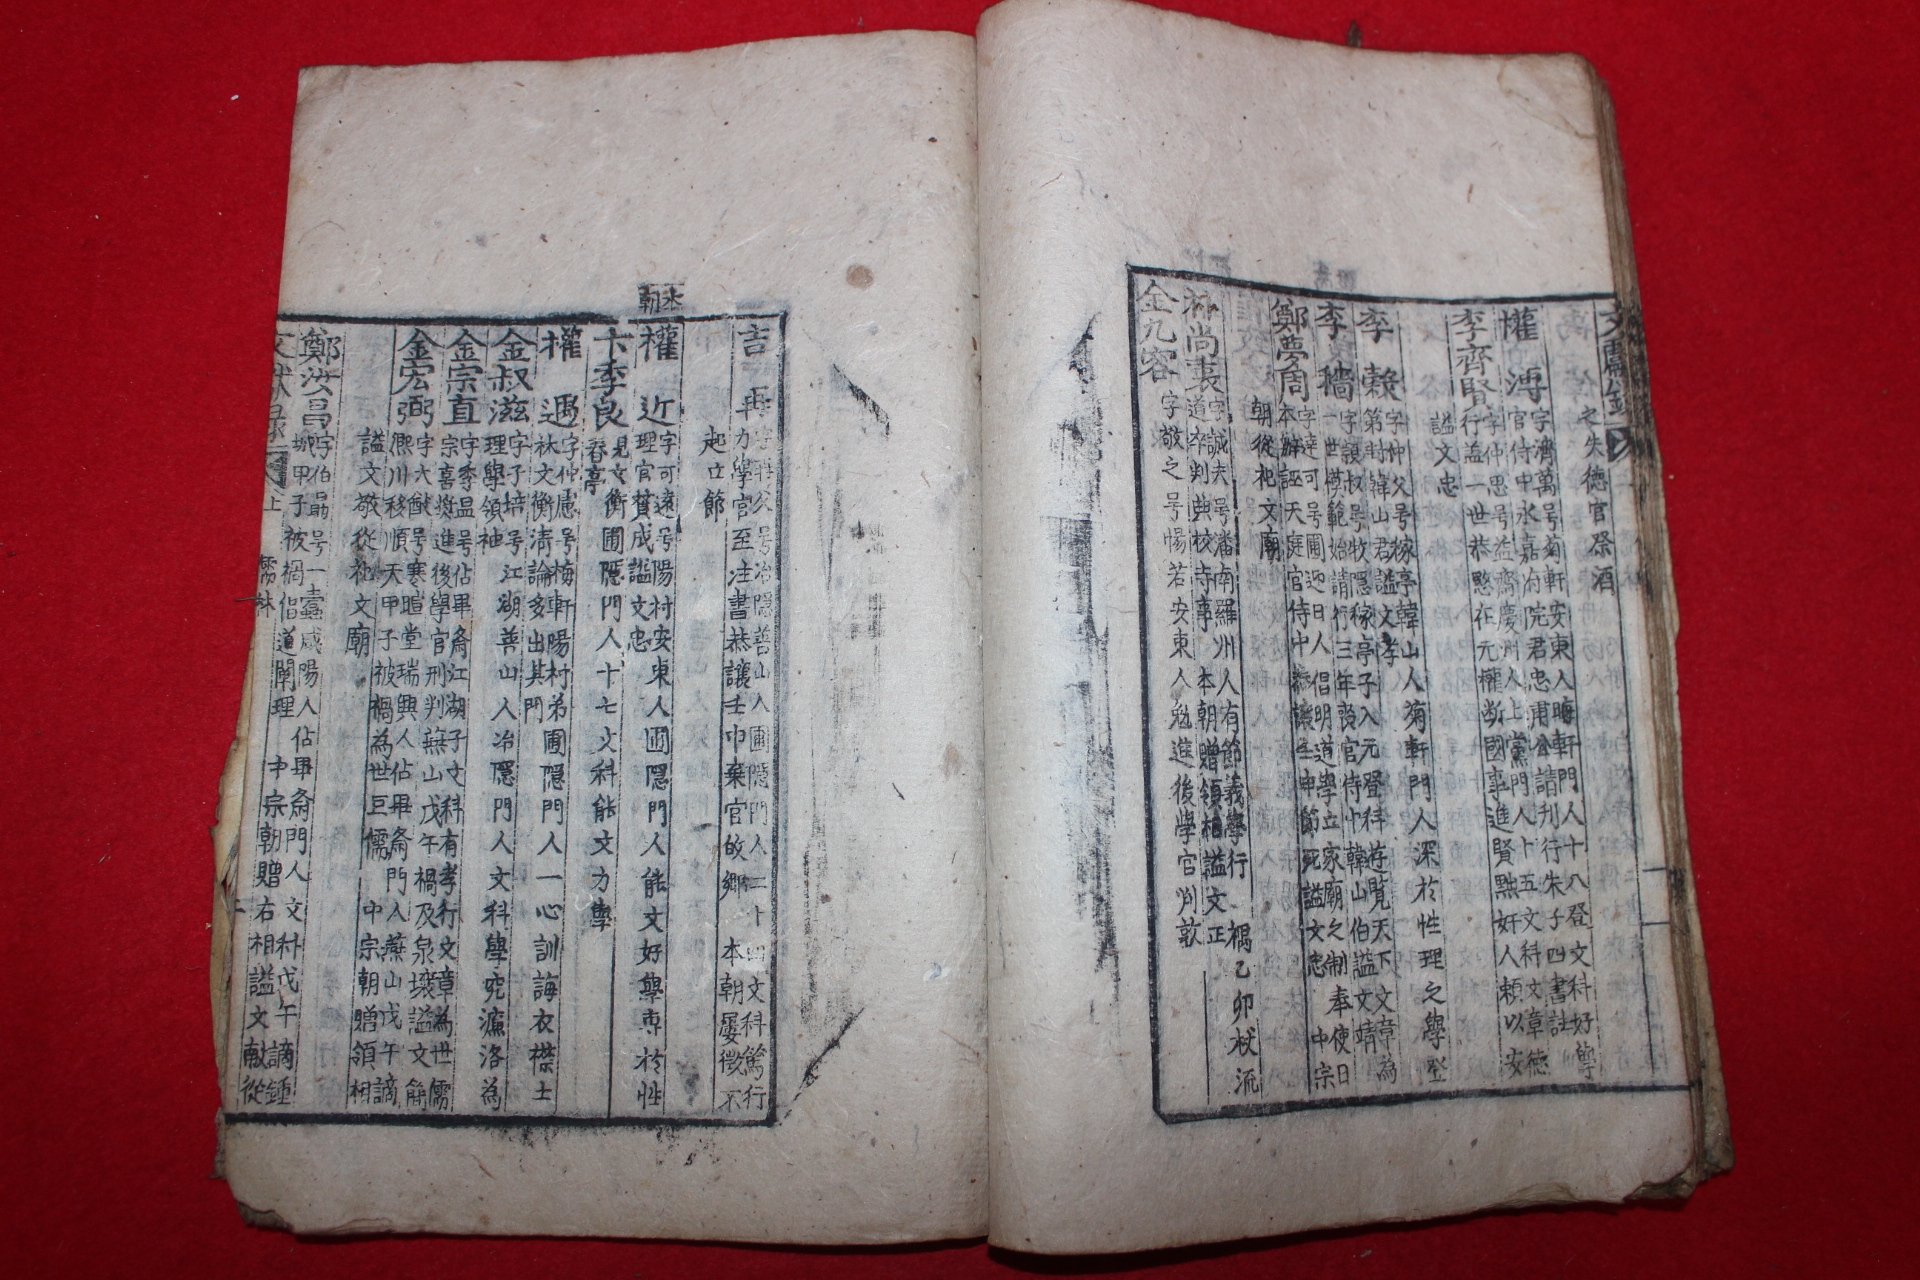 之失德官祭酒
權溥
字濟萬号菊軒安東人晦軒門人十八登文科好學
官侍中永嘉府院君忠甫公請刊行朱子四書註
李齊賢
字仲思号益齋慶州人上黨門人十五文科文章德
行謚一世恭愍在元權断國事進賢黜奸人頼以安
謚文忠
李穀
字仲父号稼亭韓山人菊軒門人深於性理之學登
第封韓山君謚文孝
李穡
字頴叔号牧隱稼亭子入元登科遊覧天下文章為
一世模範始請行三年喪官侍中韓山伯謚文靖
鄭夢周
字達可号圃隠迎日人倡明道學立家廟之制奉使日
本辦誣天庭官侍中恭讓壬申節死謚文忠 中宗
朝從祀文廟
朴尚衷
字誠夫号潘南羅州人有節義學行 禑乙卯杖流
道卒判典校寺事 本朝贈領相謚文正
金九容
字敬之号惕若安東人勉進後學官判敎
本朝
吉再
字再父号冶隠善山人圃隠門人二十四文科篤行
力學官至注書恭讓壬申棄官故郷 本朝屡徴不
起 節
權近
字可遠号陽村安東人圃隠門人能文好學専於性
理官賛成謚文忠
卞季良
見文衡圃隠門人十七文科能文力學
春亭
權遇
字仲慮号梅軒陽村弟圃隠門人一心訓誨衣襟士
林文衡清論多出其門
金叔滋
字子培号江湖善山人冶隠門人文科學究濂洛為
理學領袖
金宗直
字季昷号佔畢齋江湖子文科有孝行文章為世儒
宗喜奬進後學官刑判 戊午禍及泉壤謚文簡
金宏弼
字大猷号寒暄堂瑞興人佔畢齋門人 戊午謫
熙川移順天甲子被禍為世巨儒 中宗朝贈領相
謚文敬從祀文廟
鄭汝昌
字伯勗号一蠹咸陽人佔畢齋門人文科戊午謫鍾
城甲子被禍倡道闡理 中宗朝贈右相謚文献從
文献録 上 儒林